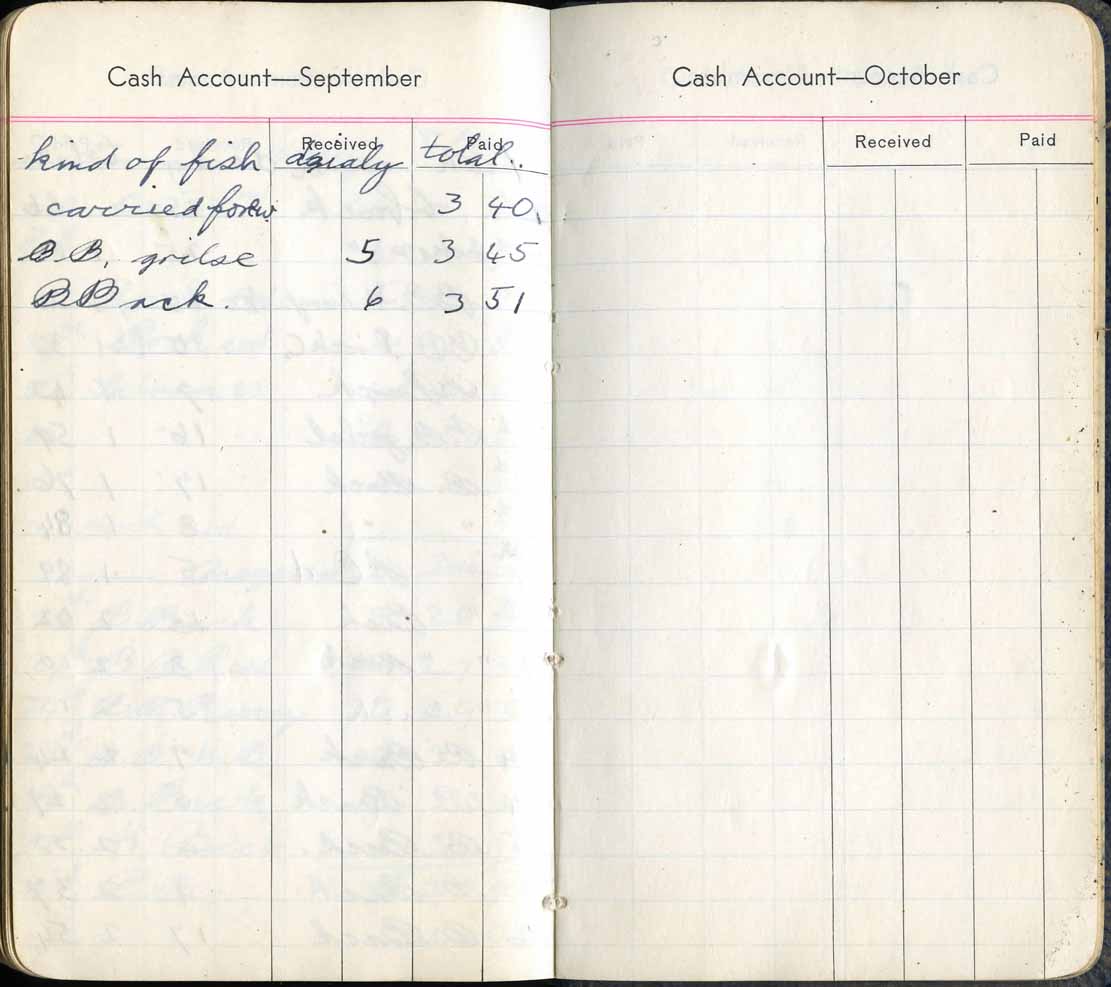 Cash Account—September
Received Paid
kind of fish daialy total.
carried forw 3 40.
B B. grilse 5 3 45
B B ack. 6 3 51
Cash Account—October
Received Paid